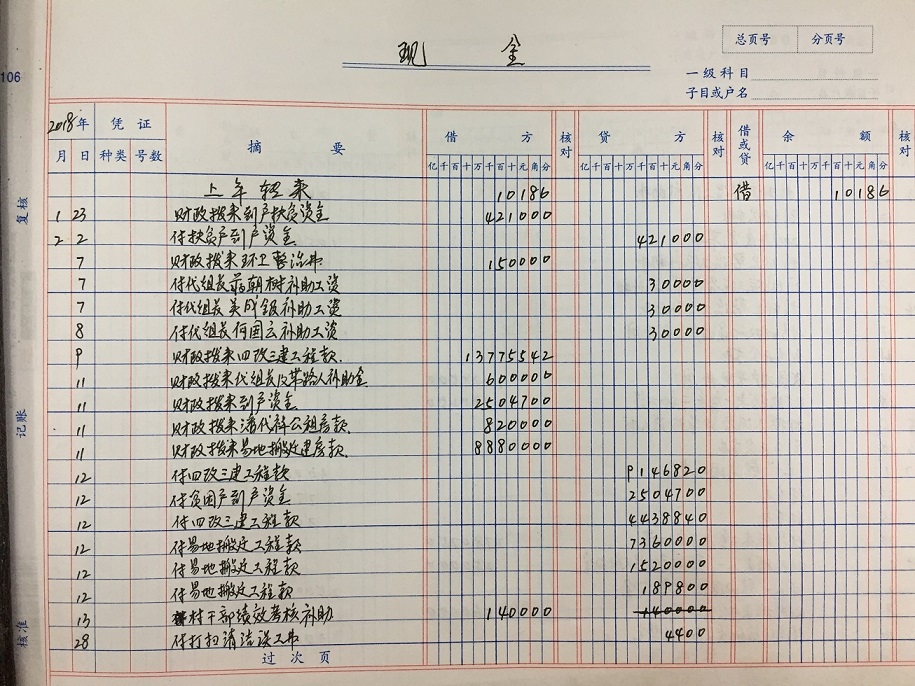 现 金
总页号 分页号
106
一级科目
子目或户名
2018年 凭证 摘要 借方 核对 贷方 核对 借或贷 余额 核对
月 日 种类 号数 亿千百十万千百十元角分 亿千百十万千百十元角分 亿千百十万千百十元角分
上年转来 10186 借 10186
1 23 财政拨来到户扶贫资金 421000
2 2 付扶贫户到户资金 421000
7 财政拨来环卫整治费 150000
7 付代组长 朝树补助工资 30000
7 付代组长 成银补助工资 30000
8 付代组长何国云补助工资 30000
9 财政拨来四改三建工程款. 13775542
11 财政拨来代组长及 路人补助金 600000
11 财政拨来到户资金 2504700
11 财政拨来 代科公租房款. 820000
11 财政拨来易地搬迁建房款. 8880000
12 付四改三建工程款 9146820
12 付贫困户到户资金 2504700
12 付四改三建工程款 4438840
12 付易地搬迁工程款 7360000
12 付易地搬迁工程款 1520000
12 付易地搬迁工程款 189800
13 村干部绩效考核补助 140000 140000
28 付打扫清洁误工费 4400
过次页
复核
记账
核准